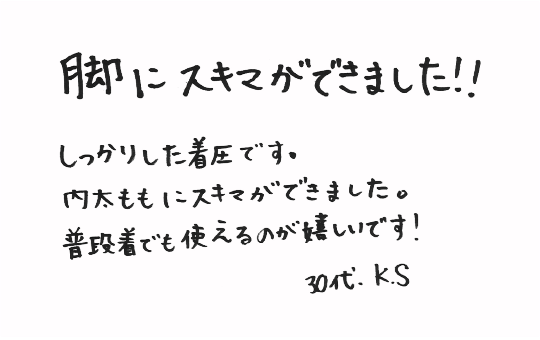 脚にスキマができました!!
しっかりした着圧です。
内太ももにスキマができました。
普段着でも使えるのが嬉しいです!
30代. K.S